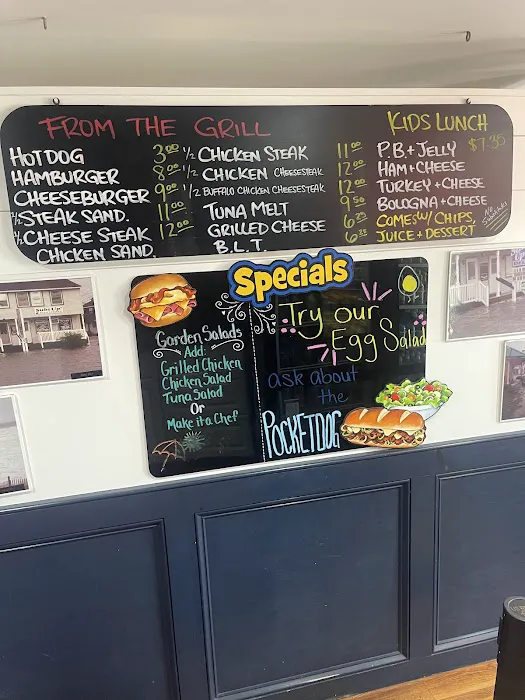 FROM THE GRILL
HOTDOG 3.00
HAMBURGER 8.00
CHEESEBURGER 9.00
1/2 STEAK SAND. 11.00
1/2 CHEESE STEAK 12.00
CHICKEN SAND.
1/2 CHICKEN STEAK 11.00
1/2 CHICKEN CHEESESTEAK 12.00
1/2 BUFFALO CHICKEN CHEESESTEAK 12.00
TUNA MELT 9.50
GRILLED CHEESE
B.L.T.
KIDS LUNCH
P.B. + JELLY
HAM + CHEESE
TURKEY + CHEESE
BOLOGNA + CHEESE
COMES W/ CHIPS,
JUICE + DESSERT
Specials
Garden Salads
Add:
Grilled Chicken
Chicken Salad
Tuna Salad
Or
Make it a Chef
Try our
Egg Salad
ask about
the
POCKETDOG